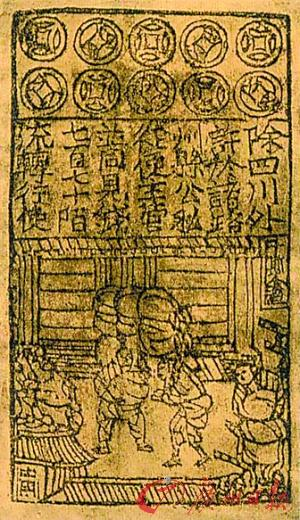 除四川外
許於諸路
州縣公私
從便主管
並同見錢
七百七十陌
流轉行使
广州日报